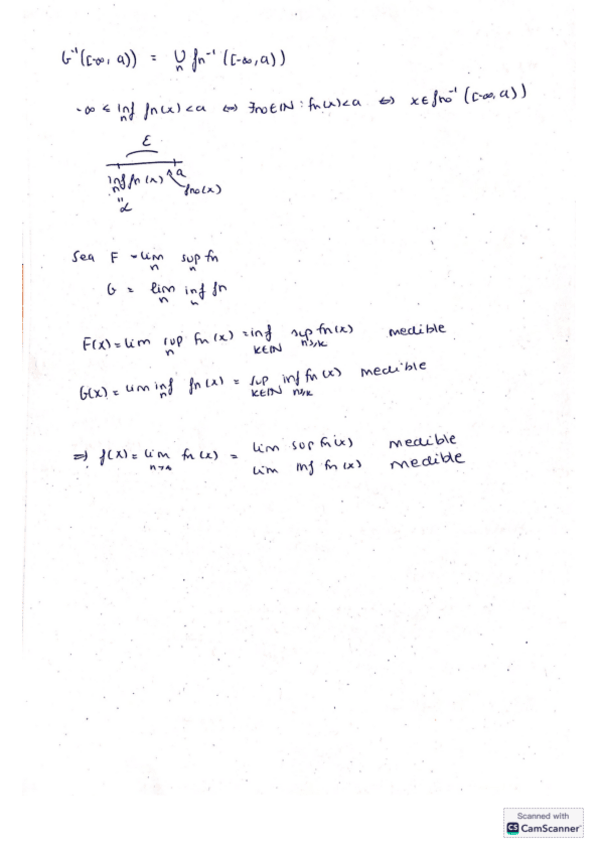 G⁻¹([-∞, a)) = ⋃ₙ fn⁻¹([-∞, a))
-∞ ≤ inf fn(x) < a ⇔ ∃n₀∈ℕ : fn₀(x) < a ⇔ x ∈ fn₀⁻¹([-∞, a))
n
ε
inf fn(x) a
n fn₀(x)
"
α
Sea F = lim sup fn
n n
G = lim inf fn
n n
F(x) = lim sup fn(x) = inf sup fn(x) medible
n k∈ℕ n≥k
G(x) = lim inf fn(x) = sup inf fn(x) medible
n k∈ℕ n≥k
⇒ f(x) = lim fn(x) = lim sup fn(x) medible
lim inf fn(x) medible
Scanned with
CS CamScanner